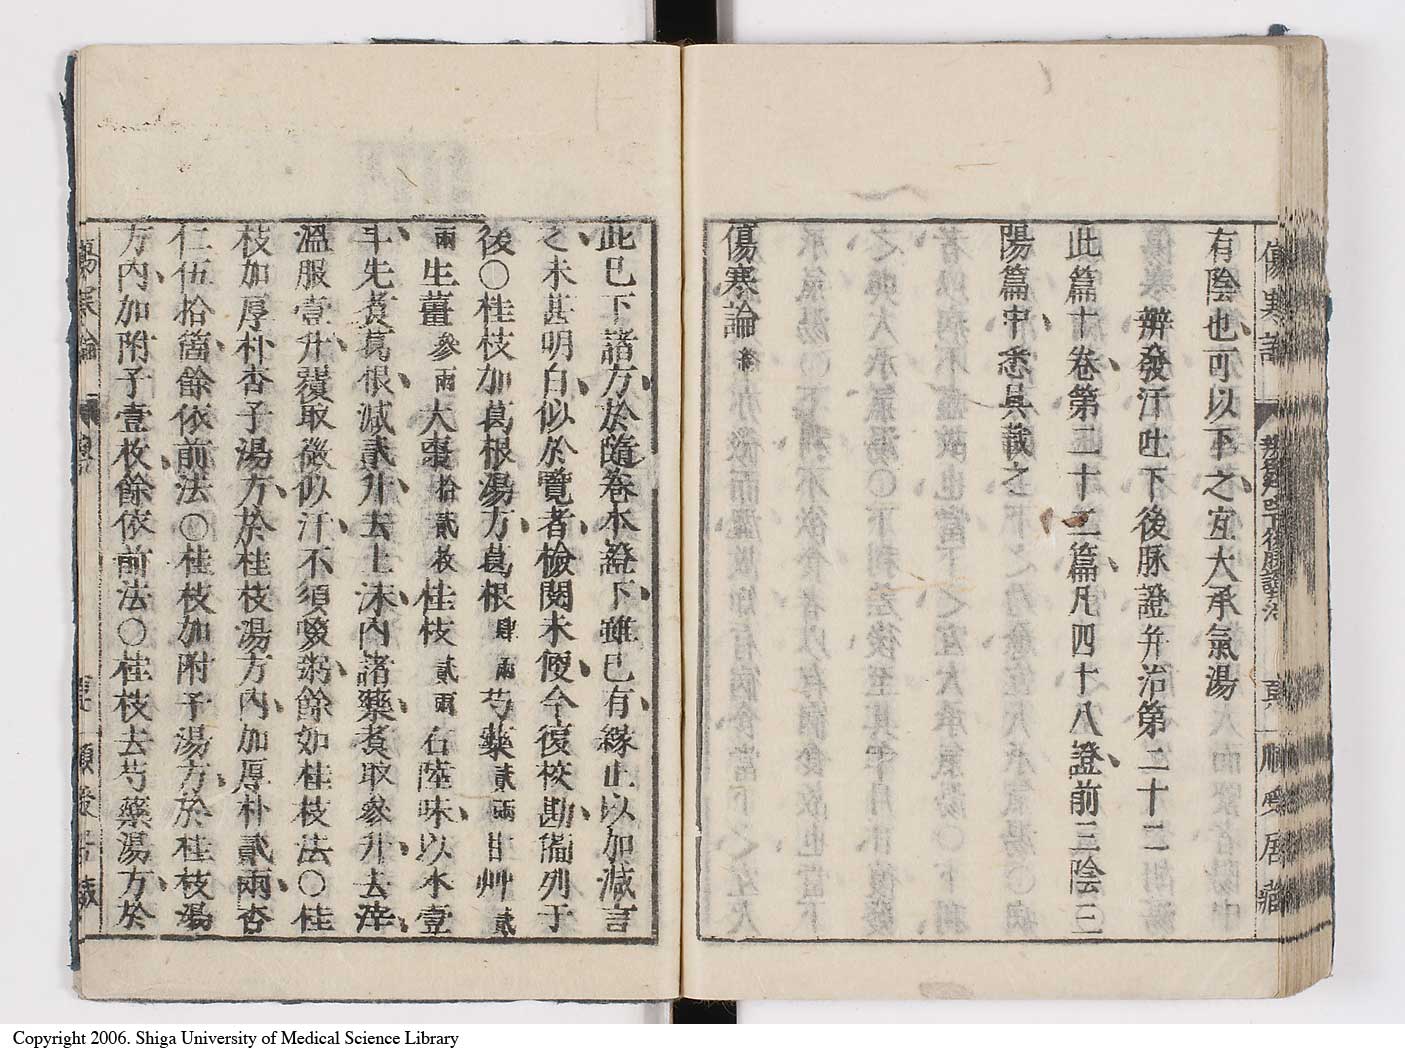 有陰也可以下之宜大承氣湯
辨發汗吐下後脉證并治第二十二
此篇十卷第二十二篇凡四十八證前三陰三
陽篇中悉具載之
傷寒論 終
此已下諸方於隨卷本證下雖已有緣止以加減言
之未甚明白似於覽者檢閱未便今復校勘備列于
後○桂枝加葛根湯方葛根肆兩芍藥貳兩甘艸貳
兩生薑參兩大棗拾貳枚桂枝貳兩右陸味以水壹
斗先煑葛根減貳升去上沫內諸藥煑取參升去滓
溫服壹升覆取微似汗不須啜粥餘如桂枝法○桂
枝加厚朴杏子湯方於桂枝湯方內加厚朴貳兩杏
仁伍拾箇餘依前法○桂枝加附子湯方於桂枝湯
方內加附子壹枚餘依前法○桂枝去芍藥湯方於
Copyright 2006. Shiga University of Medical Science Library